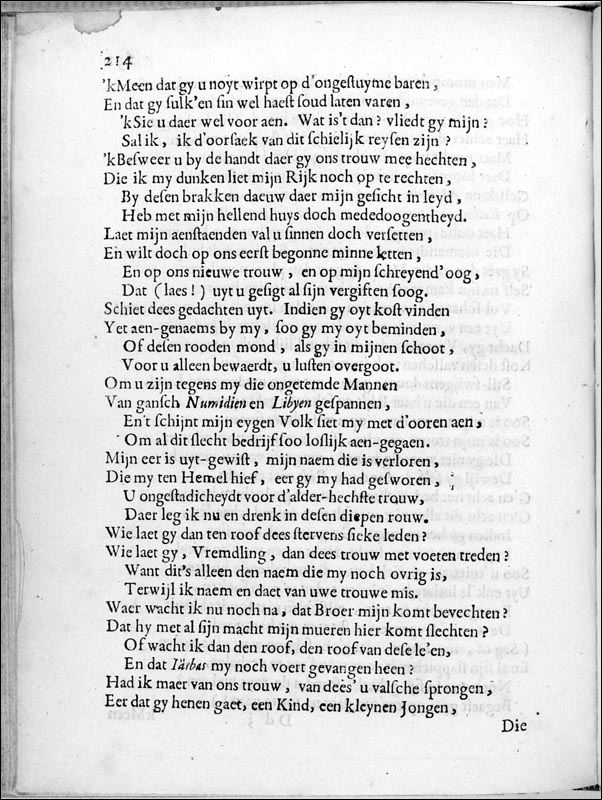 214
'kMeen dat gy u noyt wirpt op d'ongestuyme baren,
En dat gy sulk'en sin wel haest soud laten varen,
'kSie u daer wel voor aen. Wat is't dan? vliedt gy mijn?
Sal ik, ik d'oorsaek van dit schielijk reysen zijn?
'kBesweer u by de handt daer gy ons trouw mee hechten,
Die ik my dunken liet mijn Rijk noch op te rechten,
By desen brakken daeuw daer mijn gesicht in leyd,
Heb met mijn hellend huys doch mededoogentheyd.
Laet mijn aenstaenden val u sinnen doch versetten,
En wilt doch op ons eerst begonne minne letten,
En op ons nieuwe trouw, en op mijn schreyend'oog,
Dat (laes!) uyt u gesigt al sijn vergiften soog.
Schiet dees gedachten uyt. Indien gy oyt kost vinden
Yet aen-genaems by my, soo gy my oyt beminden,
Of desen rooden mond, als gy in mijnen schoot,
Voor u alleen bewaerdt, u lusten overgoot.
Om u zijn tegens my die ongetemde Mannen
Van gansch Numidien en Libyen gespannen,
En't schijnt mijn eygen Volk siet my met d'ooren aen,
Om al dit slecht bedrijf soo loslijk aen-gegaen.
Mijn eer is uyt-gewist, mijn naem die is verloren,
Die my ten Hemel hief, eer gy my had gesworen,
U ongestadicheydt voor d'alder-hechste trouw,
Daer leg ik nu en drenk in desen diepen rouw.
Wie laet gy dan ten roof dees stervens sieke leden?
Wie laet gy, Vremdling, dan dees trouw met voeten treden?
Want dit's alleen den naem die my noch ovrig is,
Terwijl ik naem en daet van uwe trouwe mis.
Waer wacht ik nu noch na, dat Broer mijn komt bevechten?
Dat hy met al sijn macht mijn mueren hier komt slechten?
Of wacht ik dan den roof, den roof van dese le'en,
En dat Iärbas my noch voert gevangen heen?
Had ik maer van ons trouw, van dees' u valsche sprongen,
Eer dat gy henen gaet, een Kind, een kleynen Jongen,
Die